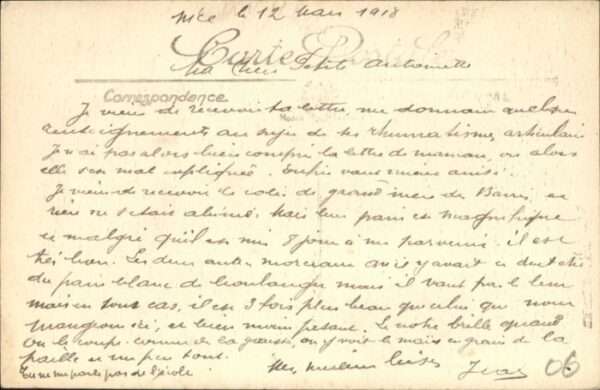 Nice le 12 Mars 1918
Carte Postale
Ma Chère Petite Antoinette
Correspondance
Je viens de recevoir ta lettre me donnant quelques
renseignements au sujet de tes rhumatisme articulaire
Je n'ai pas alors bien compris la lettre de maman, ou alors
elle s'est mal expliquée. Enfin vaut mieux ainsi.
Je viens de recevoir le colis de grand'mère de Barri, et
rien ne s'était abimé. Mais leur pain est magnifique
et malgré qu'il est mis 8 jours à me parvenir il est
très bon. Les deux autres morceaux qu'il y avait
du pain blanc de boulanger mais il vaut pas le leur
mais en tout cas, il est 3 fois plus beau que celui que nous
mangeons ici, et bien moins pesant. Le notre brille quand
on le coupe comme de la graisse, on y voit le maïs en grains de la
paille et un peu tout.
Tu ne me parles pas de l'école.
Mes meilleurs baisers
Jean
06